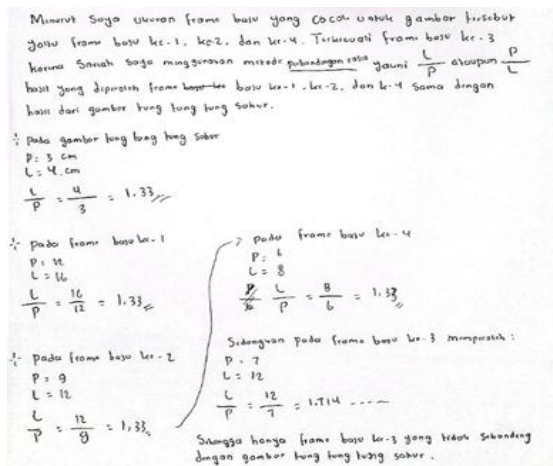 Menurut Saya ukuran frame baju yang cocok untuk gambar tersebut
yaitu frame baju ke-1, ke-2, dan ke-4. Terkecuali frame baju ke-3
karena Setelah saya menggunakan metode perbandingan rasio yakni L/P ataupun P/L
hasil yang diperoleh frame baju ke-1, ke-2, dan k-4 sama dengan
hasil dari gambar tung tung tung sahur.
Pada gambar tung tung tung Sahur
P: 3 cm
L: 4 cm
L/P = 4/3 = 1.33
pada frame baju ke-1
P = 12
L = 16
L/P = 16/12 = 1,33
pada frame baju ke-2
P = 9
L = 12
L/P = 12/9 = 1,33
pada frame baju ke-4
P = 6
L = 8
L/P = 8/6 = 1.33
Sedangkan pada frame baju ke-3 memperoleh :
P = 7
L = 12
L/P = 12/7 = 1.714 ----
Sehingga hanya frame baju ke-3 yang tidak sebanding
dengan gambar tung tung tung sahur.